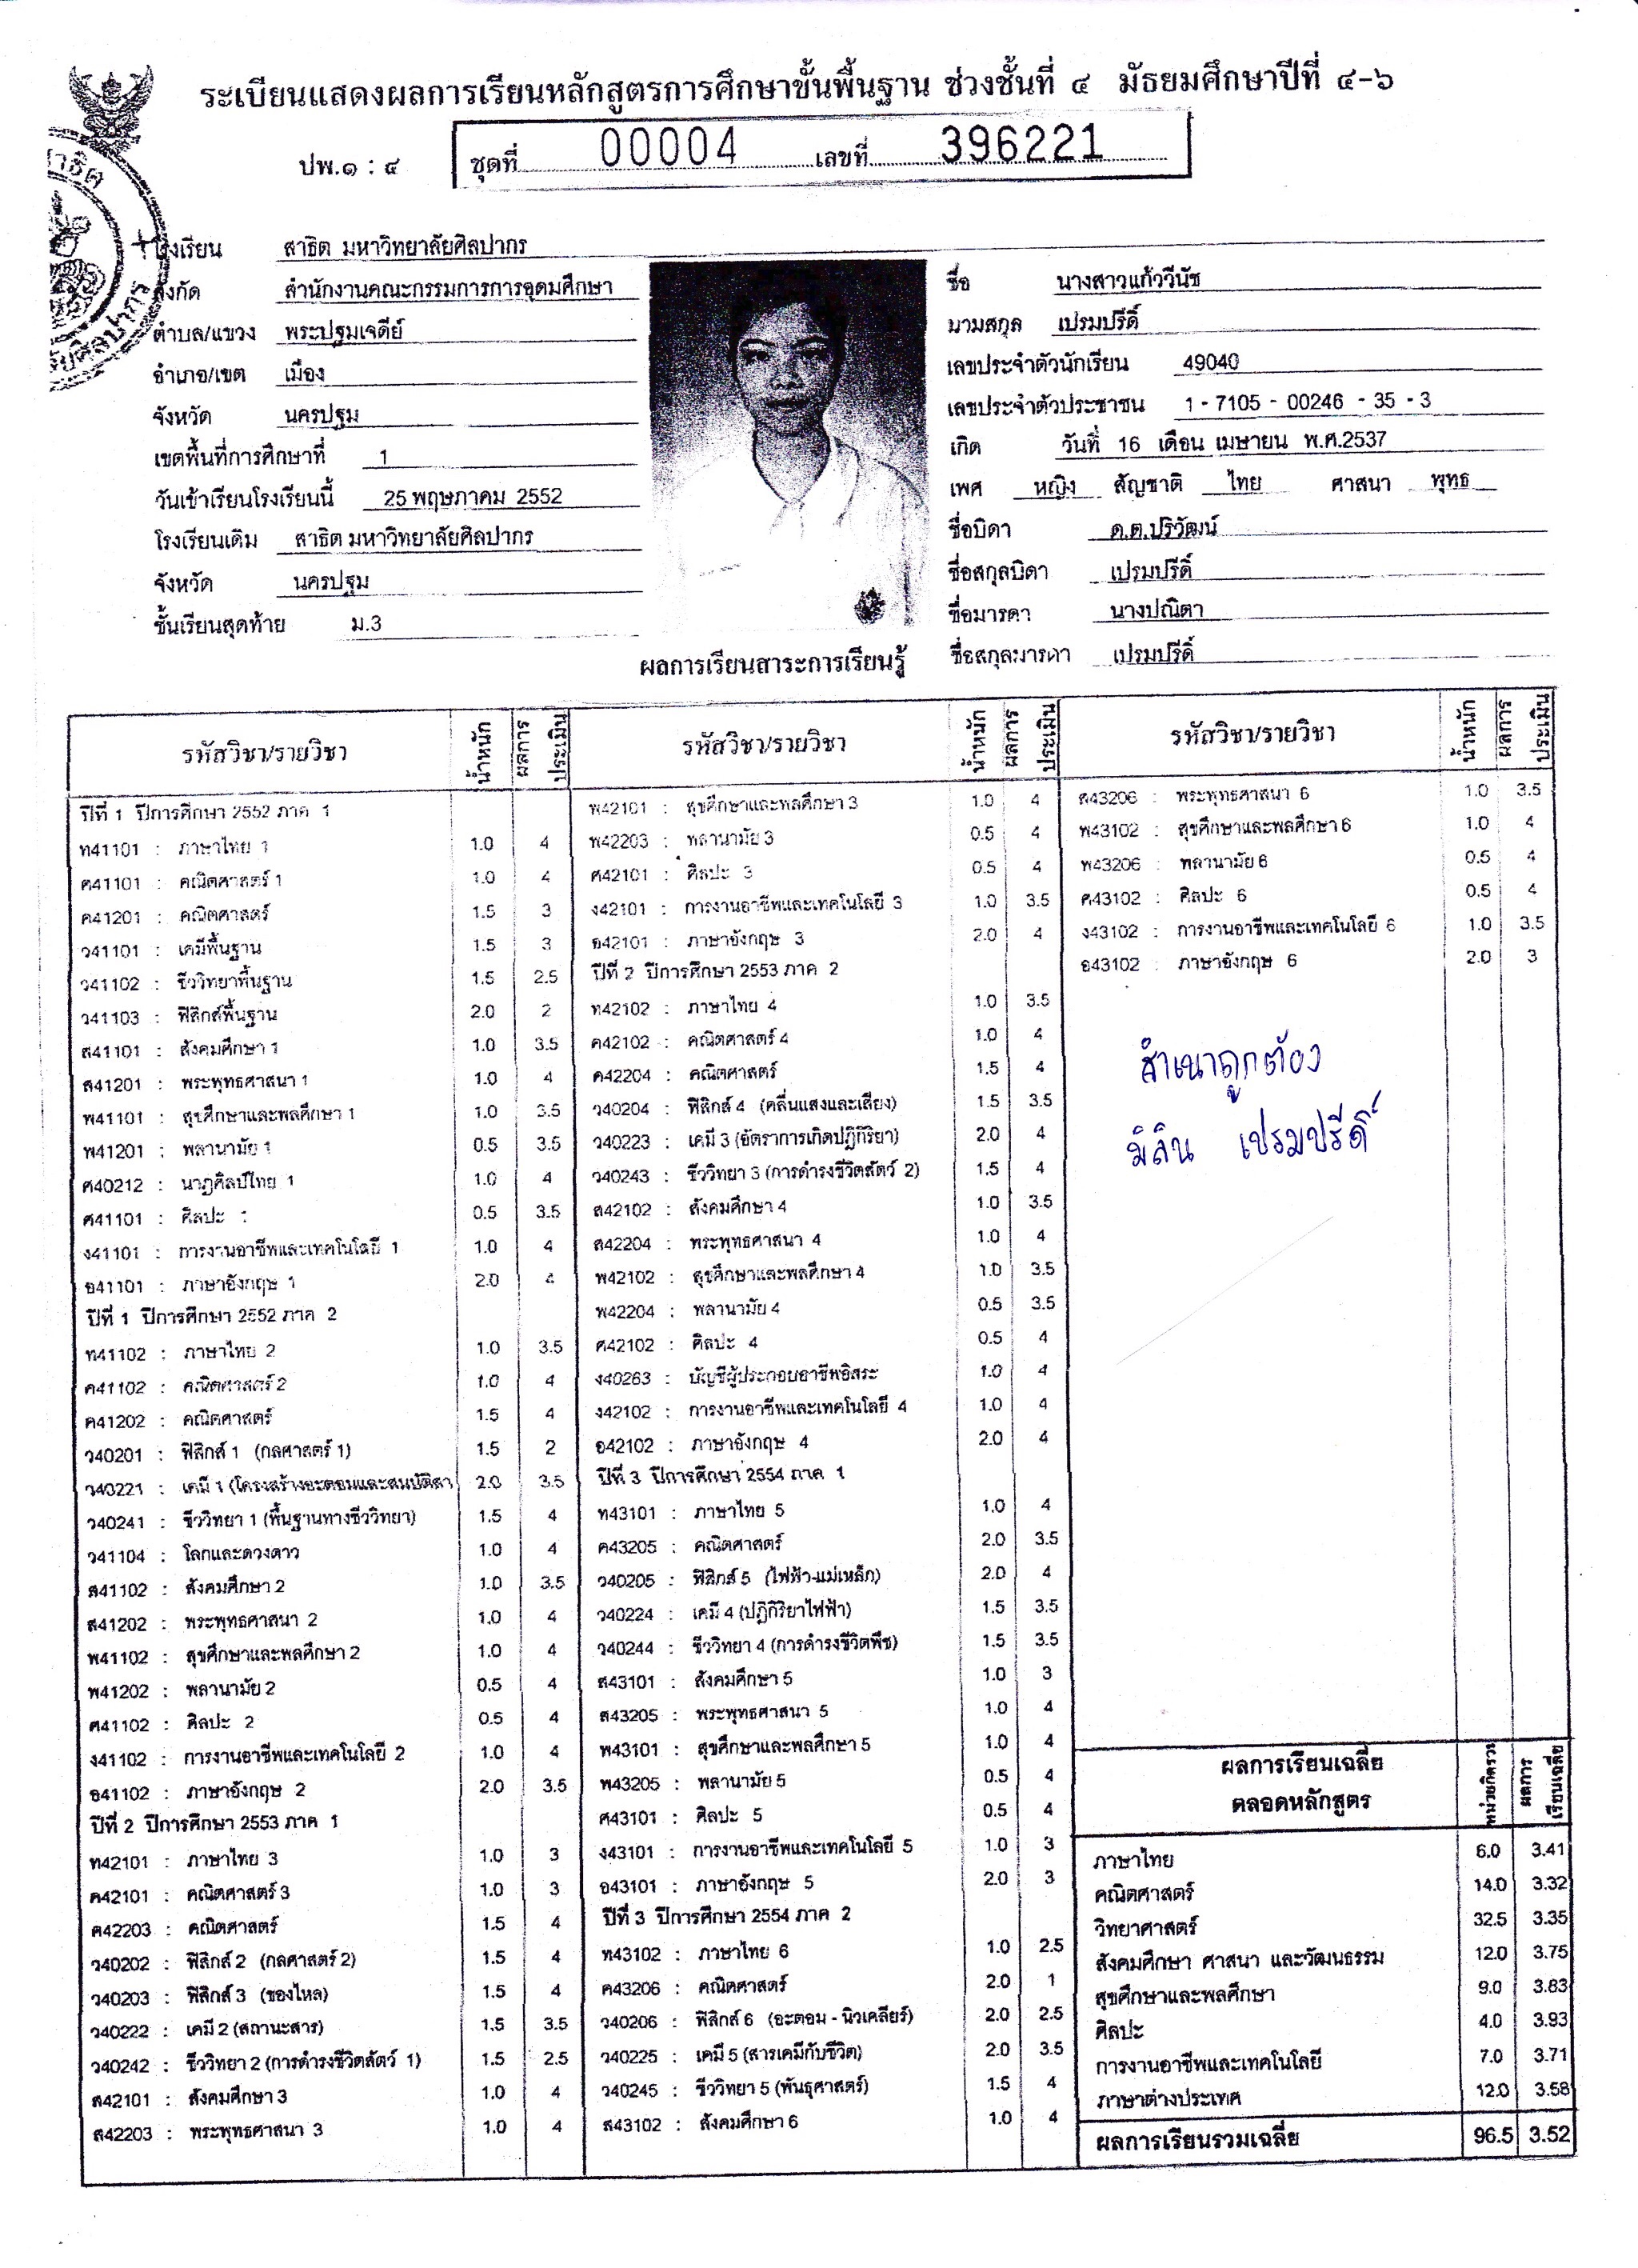 ระเบียนแสดงผลการเรียนหลักสูตรการศึกษาขั้นพื้นฐาน ช่วงชั้นที่ ๔ มัธยมศึกษาปีที่ ๔-๖
ปพ.๑ : ๔ ชุดที่ 00004 เลขที่ 396221
โรงเรียน สาธิต มหาวิทยาลัยศิลปากร
สังกัด สำนักงานคณะกรรมการการอุดมศึกษา
ตำบล/แขวง พระปฐมเจดีย์
อำเภอ/เขต เมือง
จังหวัด นครปฐม
เขตพื้นที่การศึกษาที่ 1
วันเข้าเรียนโรงเรียนนี้ 25 พฤษภาคม 2552
โรงเรียนเดิม สาธิต มหาวิทยาลัยศิลปากร
จังหวัด นครปฐม
ชั้นเรียนสุดท้าย ม.3
ชื่อ นางสาวแก้ววีนัช
นามสกุล เปรมปรีดิ์
เลขประจำตัวนักเรียน 49040
เลขประจำตัวประชาชน 1 - 7105 - 00246 - 35 - 3
เกิด วันที่ 16 เดือน เมษายน พ.ศ.2537
เพศ หญิง สัญชาติ ไทย ศาสนา พุทธ
ชื่อบิดา ด.ต.ปริวัฒน์
ชื่อสกุลบิดา เปรมปรีดิ์
ชื่อมารดา นางปณิตา
ชื่อสกุลมารดา เปรมปรีดิ์
ผลการเรียนสาระการเรียนรู้
รหัสวิชา/รายวิชา น้ำหนัก ผลการประเมิน
ปีที่ 1 ปีการศึกษา 2552 ภาค 1
ท41101 : ภาษาไทย 1 1.0 4
ค41101 : คณิตศาสตร์ 1 1.0 4
ค41201 : คณิตศาสตร์ 1.5 3
ว41101 : เคมีพื้นฐาน 1.5 3
ว41102 : ชีววิทยาพื้นฐาน 1.5 2.5
ว41103 : ฟิสิกส์พื้นฐาน 2.0 2
ส41101 : สังคมศึกษา 1 1.0 3.5
ส41201 : พระพุทธศาสนา 1 1.0 4
พ41101 : สุขศึกษาและพลศึกษา 1 1.0 3.5
พ41201 : พลานามัย 1 0.5 3.5
ศ40212 : นาฏศิลป์ไทย 1 1.0 4
ศ41101 : ศิลปะ 1 0.5 3.5
ง41101 : การงานอาชีพและเทคโนโลยี 1 1.0 4
อ41101 : ภาษาอังกฤษ 1 2.0 4
ปีที่ 1 ปีการศึกษา 2552 ภาค 2
ท41102 : ภาษาไทย 2 1.0 3.5
ค41102 : คณิตศาสตร์ 2 1.0 4
ค41202 : คณิตศาสตร์ 1.5 4
ว40201 : ฟิสิกส์ 1 (กลศาสตร์ 1) 1.5 2
ว40221 : เคมี 1 (โครงสร้างอะตอมและสมบัติสา 2.0 3.5
ว40241 : ชีววิทยา 1 (พื้นฐานทางชีววิทยา) 1.5 4
ว41104 : โลกและดวงดาว 1.0 4
ส41102 : สังคมศึกษา 2 1.0 3.5
ส41202 : พระพุทธศาสนา 2 1.0 4
พ41102 : สุขศึกษาและพลศึกษา 2 1.0 4
พ41202 : พลานามัย 2 0.5 4
ศ41102 : ศิลปะ 2 0.5 4
ง41102 : การงานอาชีพและเทคโนโลยี 2 1.0 4
อ41102 : ภาษาอังกฤษ 2 2.0 3.5
ปีที่ 2 ปีการศึกษา 2553 ภาค 1
ท42101 : ภาษาไทย 3 1.0 3
ค42101 : คณิตศาสตร์ 3 1.0 3
ค42203 : คณิตศาสตร์ 1.5 4
ว40202 : ฟิสิกส์ 2 (กลศาสตร์ 2) 1.5 4
ว40203 : ฟิสิกส์ 3 (ของไหล) 1.5 4
ว40222 : เคมี 2 (สถานะสาร) 1.5 3.5
ว40242 : ชีววิทยา 2 (การดำรงชีวิตสัตว์ 1) 1.5 2.5
ส42101 : สังคมศึกษา 3 1.0 4
ส42203 : พระพุทธศาสนา 3 1.0 4
รหัสวิชา/รายวิชา น้ำหนัก ผลการประเมิน
พ42101 : สุขศึกษาและพลศึกษา 3 1.0 4
พ42203 : พลานามัย 3 0.5 4
ศ42101 : ศิลปะ 3 0.5 4
ง42101 : การงานอาชีพและเทคโนโลยี 3 1.0 3.5
อ42101 : ภาษาอังกฤษ 3 2.0 4
ปีที่ 2 ปีการศึกษา 2553 ภาค 2
ท42102 : ภาษาไทย 4 1.0 3.5
ค42102 : คณิตศาสตร์ 4 1.0 4
ค42204 : คณิตศาสตร์ 1.5 4
ว40204 : ฟิสิกส์ 4 (คลื่นแสงและเสียง) 1.5 3.5
ว40223 : เคมี 3 (อัตราการเกิดปฏิกิริยา) 2.0 4
ว40243 : ชีววิทยา 3 (การดำรงชีวิตสัตว์ 2) 1.5 4
ส42102 : สังคมศึกษา 4 1.0 3.5
ส42204 : พระพุทธศาสนา 4 1.0 4
พ42102 : สุขศึกษาและพลศึกษา 4 1.0 3.5
พ42204 : พลานามัย 4 0.5 3.5
ศ42102 : ศิลปะ 4 0.5 4
ง40263 : บัญชีผู้ประกอบอาชีพอิสระ 1.0 4
ง42102 : การงานอาชีพและเทคโนโลยี 4 1.0 4
อ42102 : ภาษาอังกฤษ 4 2.0 4
ปีที่ 3 ปีการศึกษา 2554 ภาค 1
ท43101 : ภาษาไทย 5 1.0 4
ค43205 : คณิตศาสตร์ 2.0 3.5
ว40205 : ฟิสิกส์ 5 (ไฟฟ้า-แม่เหล็ก) 2.0 4
ว40224 : เคมี 4 (ปฏิกิริยาไฟฟ้า) 1.5 3.5
ว40244 : ชีววิทยา 4 (การดำรงชีวิตพืช) 1.5 3.5
ส43101 : สังคมศึกษา 5 1.0 3
ส43205 : พระพุทธศาสนา 5 1.0 4
พ43101 : สุขศึกษาและพลศึกษา 5 1.0 4
พ43205 : พลานามัย 5 0.5 4
ศ43101 : ศิลปะ 5 0.5 4
ง43101 : การงานอาชีพและเทคโนโลยี 5 1.0 3
อ43101 : ภาษาอังกฤษ 5 2.0 3
ปีที่ 3 ปีการศึกษา 2554 ภาค 2
ท43102 : ภาษาไทย 6 1.0 2.5
ค43206 : คณิตศาสตร์ 2.0 1
ว40206 : ฟิสิกส์ 6 (อะตอม - นิวเคลียร์) 2.0 2.5
ว40225 : เคมี 5 (สารเคมีกับชีวิต) 2.0 3.5
ว40245 : ชีววิทยา 5 (พันธุศาสตร์) 1.5 4
ส43102 : สังคมศึกษา 6 1.0 4
รหัสวิชา/รายวิชา น้ำหนัก ผลการประเมิน
ส43206 : พระพุทธศาสนา 6 1.0 3.5
พ43102 : สุขศึกษาและพลศึกษา 6 1.0 4
พ43206 : พลานามัย 6 0.5 4
ศ43102 : ศิลปะ 6 0.5 4
ง43102 : การงานอาชีพและเทคโนโลยี 6 1.0 3.5
อ43102 : ภาษาอังกฤษ 6 2.0 3
สำเนาถูกต้อง
มิลิน เปรมปรีดิ์
ผลการเรียนเฉลี่ยตลอดหลักสูตร หน่วยกิตรวม ผลการเรียนเฉลี่ย
ภาษาไทย 6.0 3.41
คณิตศาสตร์ 14.0 3.32
วิทยาศาสตร์ 32.5 3.35
สังคมศึกษา ศาสนา และวัฒนธรรม 12.0 3.75
สุขศึกษาและพลศึกษา 9.0 3.83
ศิลปะ 4.0 3.93
การงานอาชีพและเทคโนโลยี 7.0 3.71
ภาษาต่างประเทศ 12.0 3.58
ผลการเรียนรวมเฉลี่ย 96.5 3.52